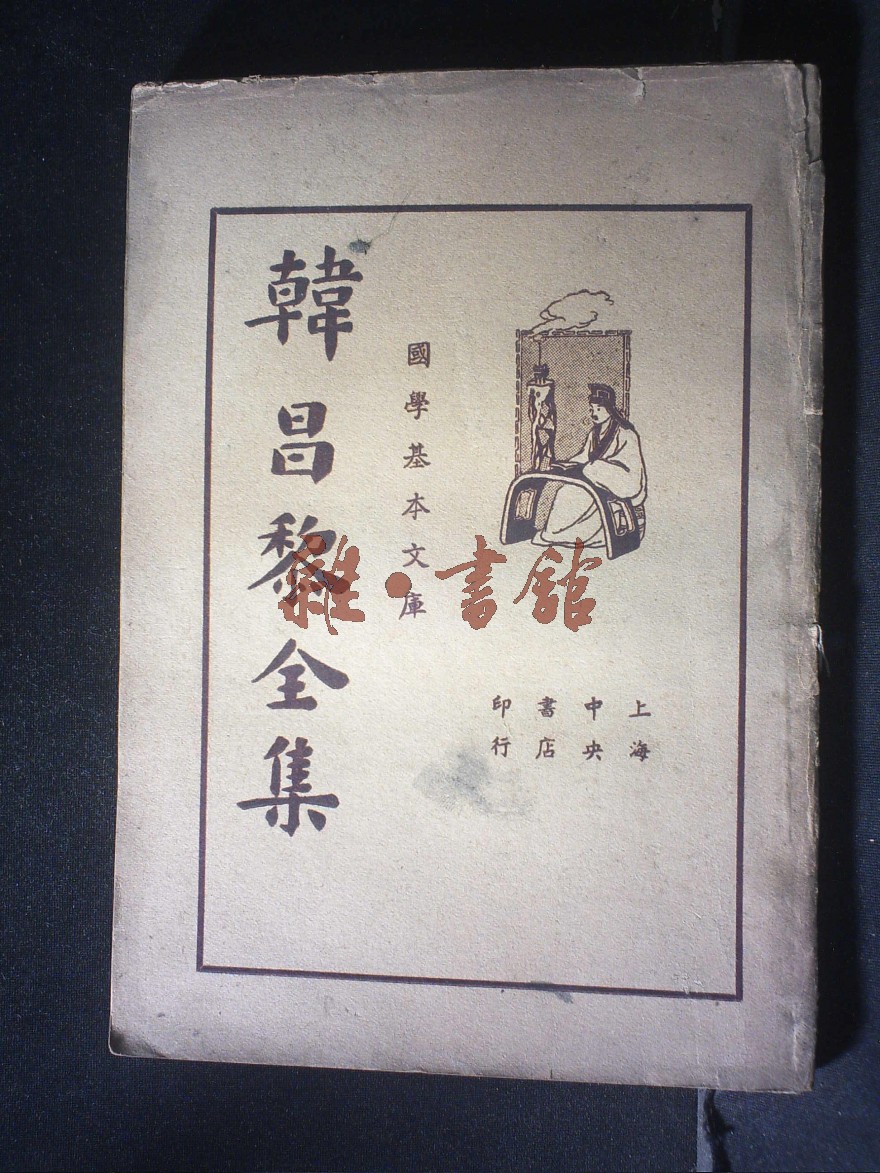 韓昌黎全集
國學基本文庫
上海
中央
書店
印行
雜·書館